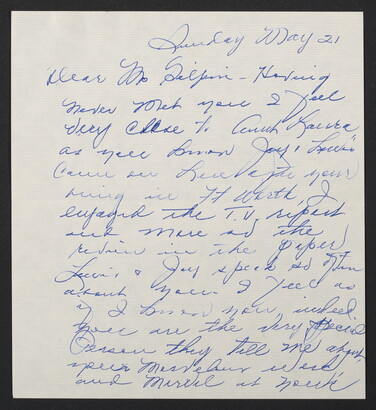 Sunday May 21
Dear Mr Gilpin - Having
never met you I feel
very close to "Aunt Laura"
as you know Joy &
came on here after your
in Ft Worth, I
enjoyed the T.V. report
and more so the
review in the paper
& Joy speak so often
about you. I feel as
if I know you, indeed.
you are the very special
Person they tell me about,
your Marvelous work,
and